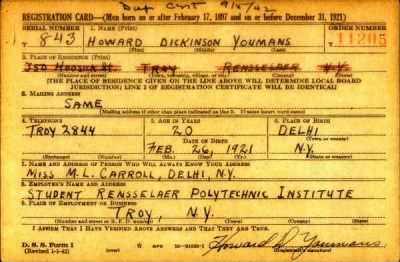 Dup Cert 9/5/42
REGISTRATION CARD—(Men born on or after February 17, 1897 and on or before December 31, 1921)
SERIAL NUMBER 1. NAME (Print) ORDER NUMBER
T 843 HOWARD DICKINSON YOUMANS 11205
(First) (Middle) (Last)
2. PLACE OF RESIDENCE (Print)
HOOSICK ST. TROY RENSSELAER N.Y.
(Number and street) (Town, township, village, or city) (County) (State)
[THE PLACE OF RESIDENCE GIVEN ON THE LINE ABOVE WILL DETERMINE LOCAL BOARD
JURISDICTION; LINE 2 OF REGISTRATION CERTIFICATE WILL BE IDENTICAL]
3. MAILING ADDRESS
SAME
[Mailing address if other than place indicated on line 2. If same insert word same]
4. TELEPHONE 5. AGE IN YEARS 6. PLACE OF BIRTH
TROY 2844 20 DELHI
DATE OF BIRTH (Town or county)
FEB. 26, 1921 N.Y.
(Exchange) (Number) (Mo.) (Day) (Yr.) (State or country)
7. NAME AND ADDRESS OF PERSON WHO WILL ALWAYS KNOW YOUR ADDRESS
MISS M.L. CARROLL, DELHI, N.Y.
8. EMPLOYER'S NAME AND ADDRESS
STUDENT RENSSELAER POLYTECHNIC INSTITUTE
9. PLACE OF EMPLOYMENT OR BUSINESS
TROY, N.Y.
(Number and street or R. F. D. number) (Town) (County) (State)
I AFFIRM THAT I HAVE VERIFIED ABOVE ANSWERS AND THAT THEY ARE TRUE.
D. S. S. Form 1
(Revised 1-1-42) Howard D. Youmans